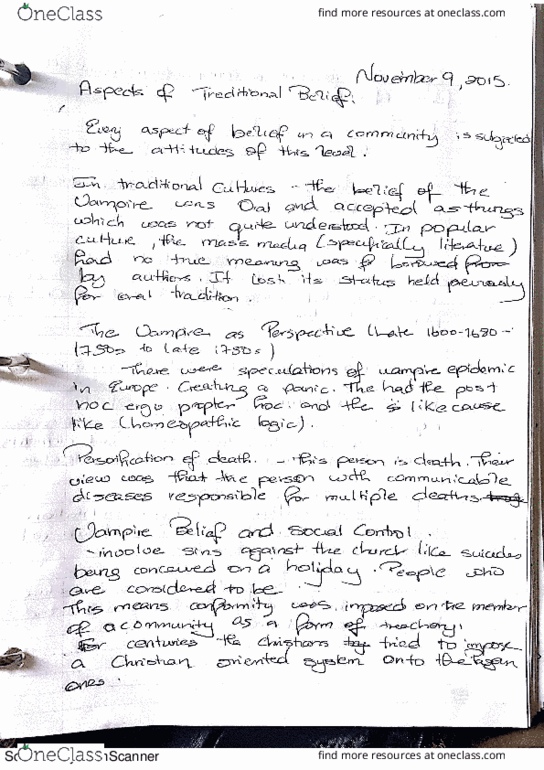 OneClass
find more resources at oneclass.com
November 9, 2015.
Aspects of Traditional Belief.
Every aspect of belief in a community is subjected
to the attitudes of this level.
In traditional cultures - the belief of the
Vampire was Oral and accepted as things
which was not quite understood. In popular
culture, the mass media (specifically literature)
had no true meaning was borrowed from
by authors. It lost its status held previously
for oral tradition.
The Vampire as Perspective (Late 1600-1680 -
1730s to late 1730s)
There were speculations of vampire epidemic
in Europe. Creating a panic. The had the post
hoc ergo propter hoc. and the like cause
like (homeopathic logic).
Personification of death. - this person is death. Their
view was that the person with communicable
diseases responsible for multiple deaths
Vampire Belief and Social Control.
- involve sins against the church like suicides
being conceived on a holiday. People who
are considered to be
This means conformity was imposed on the member
of a community as a form of treachery.
For centuries the christians tried to impose
a Christian oriented system onto the Pagan
ones.
OneClass
Scanner
find more resources at oneclass.com